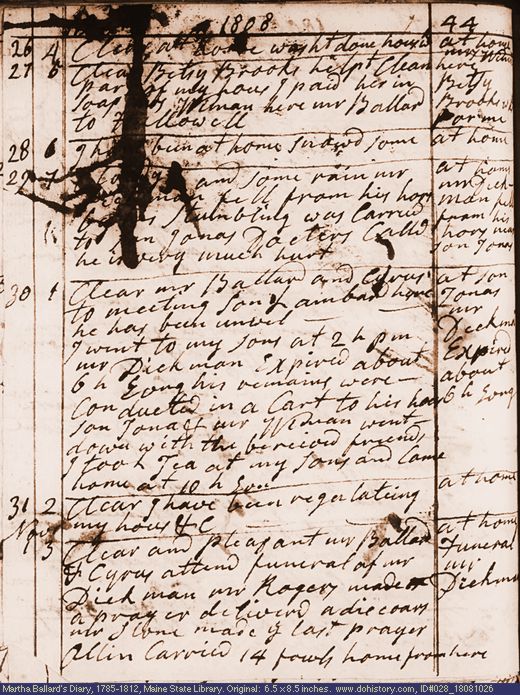 1808 44
26 4 Clear at home washt done hous at home
27 5 Clear Betsy Brooks helpt Clean here
part of my hous I paid her in Betsy
soap mr Wiman here mr Ballard Brooks
to Hallowell for me
28 6 I have been at home snowd some at home
29 7 and some rain mr at home
man fell from his hors mr Dick
stumbling was Carried man fell
to Son Jonas Docters Calld from his
he is very much hurt hors near
son Jonas
30 1 Clear mr Ballard and Cyrus at son
to meeting Son Lambard here Jonas
he has been unwel mr
I went to my sons at 2 h pm Dickman
mr Dickman Expired about Expired
6 h Evng his remains were about
Conducted in a Cart to his hous 6 h Evng
son Jonas & mr Wiman went
down with the bereived friends
I took Tea at my Sons and Came
home at 10 h Evn
31 2 Clear I have been regulateing at home
my hous &C
Nov 1 3 Clear and pleasant mr Ballard at home
& Cyrus attend funeral of mr Funeral
Dickman mr Rogers made mr
a prayer deliverd a discoars Dickman
mr Stone made ye last prayer
Allin Carried 14 fowls home from here
Martha Ballard's Diary, 1785-1812, Maine State Library. Original: 6.5 x 8.5 inches. www.dohistory.com, ID#028_18081026